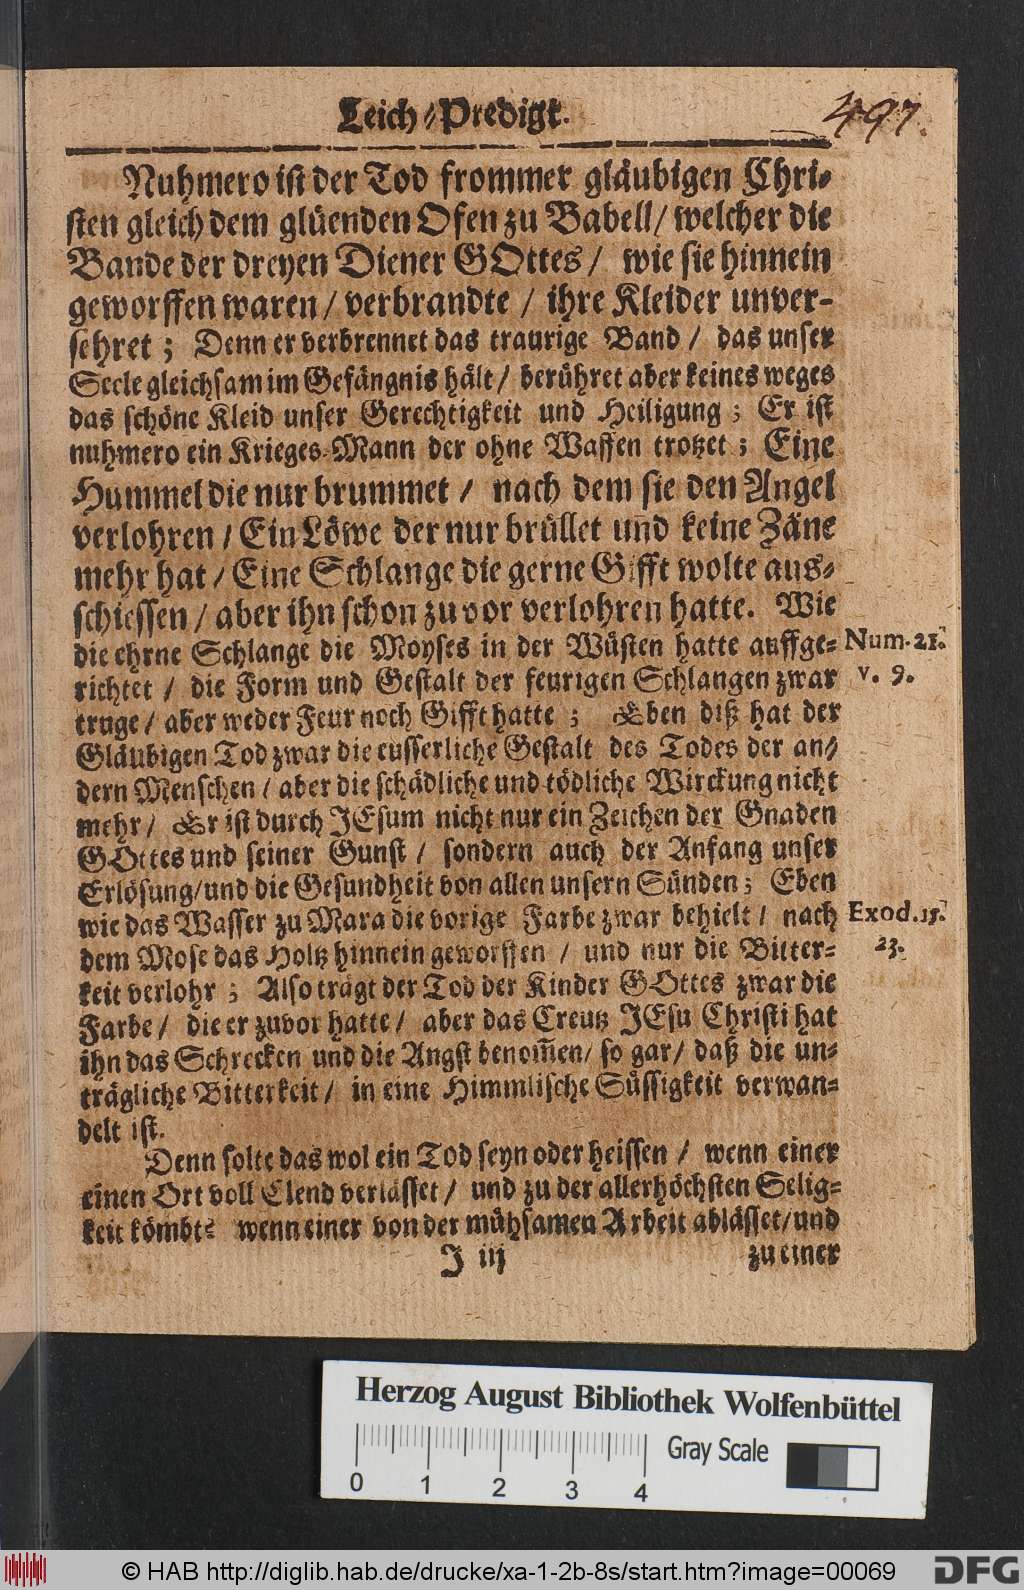 Leich-Predigt.
497.
Nuhmero ist der Tod frommer gläubigen Chri-
sten gleich dem glüenden Ofen zu Babell/ welcher die
Bande der dreyen Diener GOttes/ wie sie hinnein
geworffen waren/ verbrandte/ ihre Kleider unver-
sehret; Denn er verbrennet das traurige Band/ das unser
Seele gleichsam im Gefängnis hält/ berühret aber keines weges
das schöne Kleid unser Gerechtigkeit und Heiligung; Er ist
nuhmero ein Krieges-Mann der ohne Waffen trotzet; Eine
Hummel die nur brummet/ nach dem sie den Angel
verlohren/ Ein Löwe der nur brüllet und keine Zäne
mehr hat/ Eine Schlange die gerne Gifft wolte aus-
schiessen/ aber ihn schon zuvor verlohren hatte. Wie
die ehrne Schlange die Moyses in der Wüsten hatte auffge-
Num. 21.
richtet/ die Form und Gestalt der feurigen Schlangen zwar
v. 9.
truge/ aber weder Feur noch Gifft hatte; Eben diß hat der
Gläubigen Tod zwar die eusserliche Gestalt des Todes der an-
dern Menschen/ aber die schädliche und tödliche Wirckung nicht
mehr/ Er ist durch JEsum nicht nur ein Zeichen der Gnaden
GOttes und seiner Gunst/ sondern auch der Anfang unser
Erlösung/ und die Gesundheit von allen unsern Sünden; Eben
wie das Wasser zu Mara die vorige Farbe zwar behielt/ nach
Exod. 15.
dem Mose das Holtz hinnein geworffen/ und nur die Bitter-
23.
keit verlohr; Also trägt der Tod der Kinder GOttes zwar die
Farbe/ die er zuvor hatte/ aber das Creutz JEsu Christi hat
ihn das Schrecken und die Angst benom̃en/ so gar/ daß die un-
trägliche Bitterkeit/ in eine Himmlische Süssigkeit verwan-
delt ist.
Denn solte das wol ein Tod seyn oder heissen/ wenn einer
einen Ort voll Elend verlässet/ und zu der allerhöchsten Selig-
keit kömbt? wenn einer von der mühsamen Arbeit ablässet/ und
J iij
zu einer
Herzog August Bibliothek Wolfenbüttel
Gray Scale
0 1 2 3 4
© HAB http://diglib.hab.de/drucke/xa-1-2b-8s/start.htm?image=00069
DFG